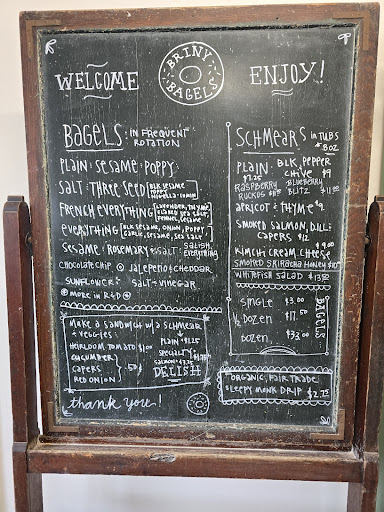 WELCOME
BRINY BAGELS
ENJOY!
BAGELS: IN FREQUENT ROTATION
PLAIN: SESAME: POPPY:
SALT: THREE SEED BLK SESAME POPPY
FRENCH EVERYTHING LAVENDER, THYME FLAKED SEA SALT, FENNEL, SESAME
EVERYTHING BLK SESAME, ONION, POPPY GARLIC, SESAME, SEA SALT
SESAME: ROSEMARY + SALT: SALISH EVERYTHING
CHOCOLATE CHIP JALAPENO + CHEDDAR
SUNFLOWER: SALT + VINEGAR
MORE IN R+D
MAKE A SANDWICH W/ A SCHMEAR
+ VEGGIES: PLAIN $1.25
HEIRLOOM TOMATO $1.00
SPECIALTY
CUCUMBER
CAPERS .50¢ DELISH
RED ONION
thank you!
SCHMEARS in TUBS 8OZ
PLAIN: BLK. PEPPER
$7.25 CHIVE $9
RASPBERRY BLUEBERRY
RUCKUS BLITZ
APRICOT & THYME $9
SMOKED SALMON, DILL:
CAPERS $12
KIMCHI CREAM CHEESE $9.00
SMOKED SRIRACHA HONEY
WHITEFISH SALAD
BAGELS
SINGLE $3.00
½ DOZEN $17.50
DOZEN $33.00
ORGANIC, FAIR TRADE
SLEEPY MONK DRIP $2.75